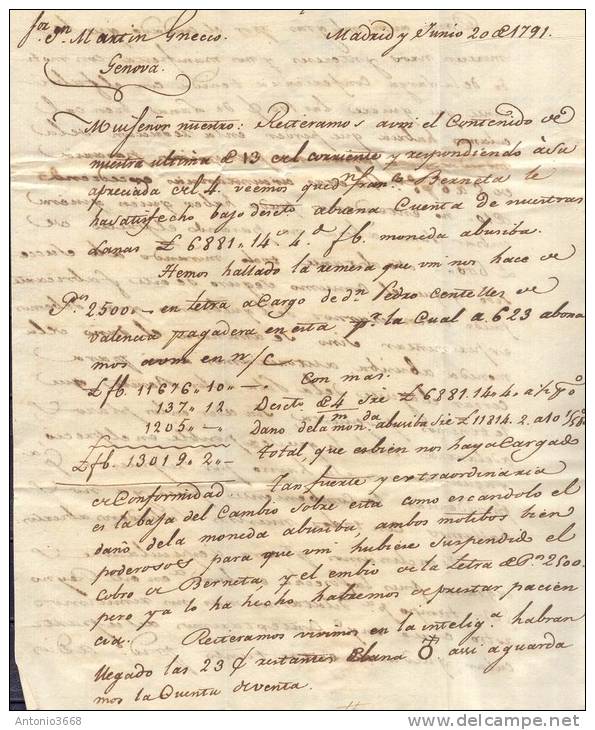 Sor. Dn. Martin Gnecco. Madrid y Junio 20 de 1791.
Genova.
Mui señor nuestro: Reiteramos a vm el Contenido de
nuestra ultima de 13 del corriente y respondiendo à su
apreciada del 4. veemos que dn. Franco. Berneta le
ha satisfecho bajo descto a buena Cuenta de nuestras
Lanas £ 6881.14.4.d fb. moneda abusiba.
Hemos hallado la remesa que vm nos hace de
Ps. 2500.- en letra a Cargo de dn. Pedro Centelles de
Valencia pagadera en esta pr. la Cual a 623 abona
mos a vm en n/c
£ fb. 11676,, 10,, -. Con mas.
137,, 12 Descto de 4 m/ Sre £ 6881.14.4. a 1/2 p%o
1205,, - Daño de la monda abusiba Sre £ 11814.2. a 10 1/5 %
£ fb. 13019,, 2,, - Total, que es bien nos haya Cargado
de Conformidad. Tan fuerte y extraordinaria
es la baja del Cambio sobre esta como escandolo el
daño de la moneda abusiba, ambos motibos bien
poderosos para que vm hubiese suspendido el
Cobro de Berneta, y el embio de la Letra de Ps. 2500.
pero ya lo ha hecho habremos de prestar pacien
cia. Reiteramos vivimos en la intelig.a habran
llegado las 23 restantes asi aguarda
mos la Quenta de venta.
Antonio3668
www.delcampe.net